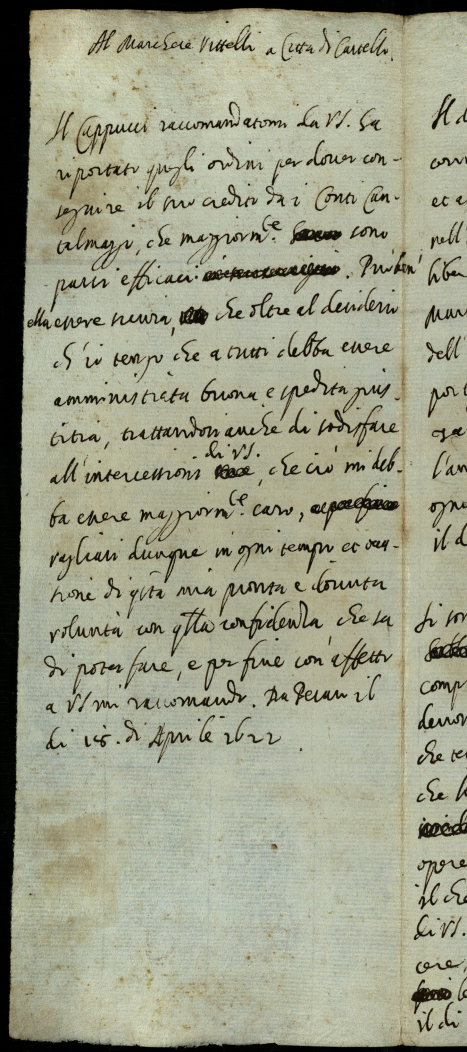 Al Marchese Vittelli a Citta di Castello.
Il Cappucci raccomandatomi da VS. ha
riportato quegli ordini per dover con-
seguire il suo credito da i Conti Can-
talmaggi, che maggiorm.te sono
parsi efficaci. Può ben'
ella essere sicura, che oltre al desiderio
ch'io tengo che a tutti debba essere
amministrata buona e spedita gius-
titia, trattandosi anche di sodisfare
all'intercessioni di VS., che ciò mi deb-
ba essere maggiorm.te caro,
vagliasi dunque in ogni tempo et occa-
sione di q.sta mia pronta e dovuta
volontà con q.lla confidenza, che sa
di poter fare, e per fine con affetto
a VS mi raccomando. Da Pesaro il
di 18. di Aprile 1622
Il d
con
et a
nell
liber
dell'
port
l'am
ogni
il d
Si
comp
che
che
opere
il che
di VS.
cere,
il di